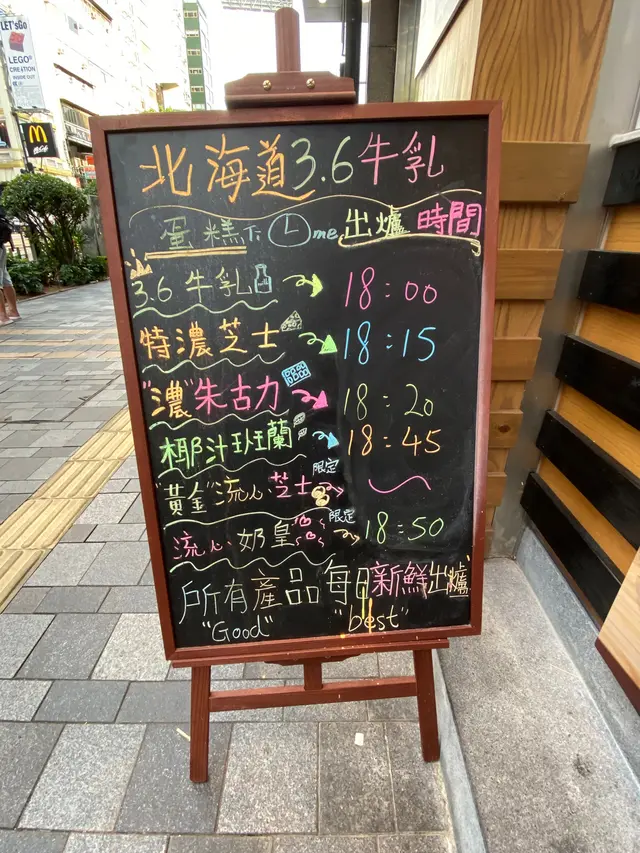 LET'sGo
LEGO
CREATION
INSIDE OUT
北海道3.6牛乳
蛋糕Ti me出爐時間
3.6牛乳 18:00
特濃芝士 18:15
"濃"朱古力 18:20
椰汁班蘭 18:45
"黃金"流心芝士 限定
流心奶皇 限定 18:50
所有產品每日新鮮出爐
"Good" "best"